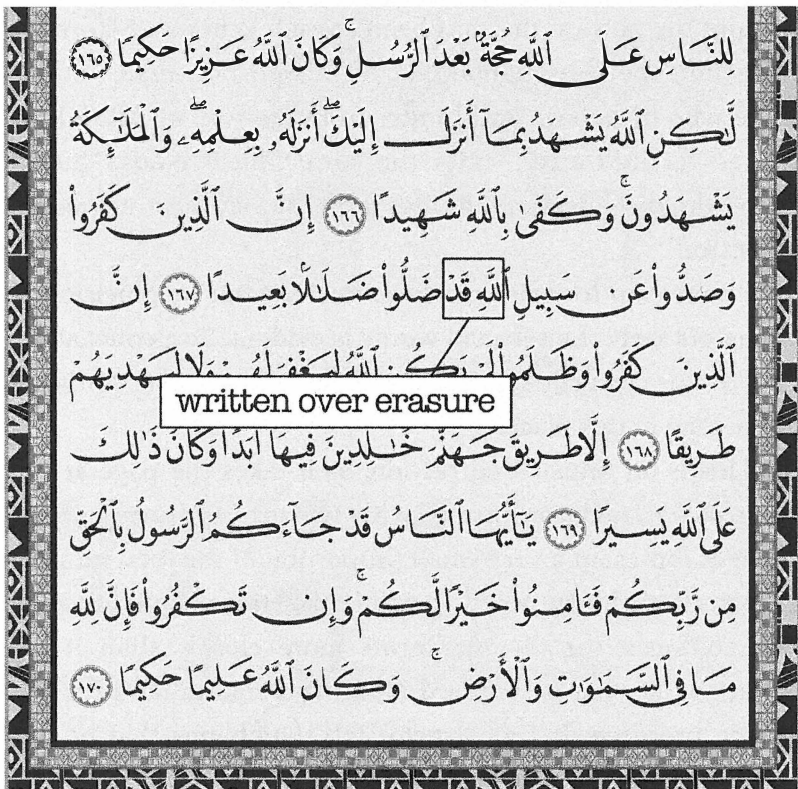 لِلنَّاسِ عَلَى ٱللَّهِ حُجَّةٌۢ بَعْدَ ٱلرُّسُلِۚ وَكَانَ ٱللَّهُ عَزِيزًا حَكِيمًا ١٦٥
لَّٰكِنِ ٱللَّهُ يَشْهَدُ بِمَآ أَنزَلَ إِلَيْكَۖ أَنزَلَهُۥ بِعِلْمِهِۦۖ وَٱلْمَلَٰٓئِكَةُ
يَشْهَدُونَۚ وَكَفَىٰ بِٱللَّهِ شَهِيدًا ١٦٦ إِنَّ ٱلَّذِينَ كَفَرُوا۟
وَصَدُّوا۟ عَن سَبِيلِ ٱللَّهِ قَدْ ضَلُّوا۟ ضَلَٰلًۢا بَعِيدًا ١٦٧ إِنَّ
ٱلَّذِينَ كَفَرُوا۟ وَظَلَمُوا۟ لَمْ يَكُنِ ٱللَّهُ لِيَغْفِرَ لَهُمْ وَلَا لِيَهْدِيَهُمْ
written over erasure
طَرِيقًا ١٦٨ إِلَّا طَرِيقَ جَهَنَّمَ خَٰلِدِينَ فِيهَآ أَبَدًا وَكَانَ ذَٰلِكَ
عَلَى ٱللَّهِ يَسِيرًا ١٦٩ يَٰٓأَيُّهَا ٱلنَّاسُ قَدْ جَآءَكُمُ ٱلرَّسُولُ بِٱلْحَقِّ
مِن رَّبِّكُمْ فَـَٔامِنُوا۟ خَيْرًا لَّكُمْۚ وَإِن تَكْفُرُوا۟ فَإِنَّ لِلَّهِ
مَا فِى ٱلسَّمَٰوَٰتِ وَٱلْأَرْضِۚ وَكَانَ ٱللَّهُ عَلِيمًا حَكِيمًا ١٧٠